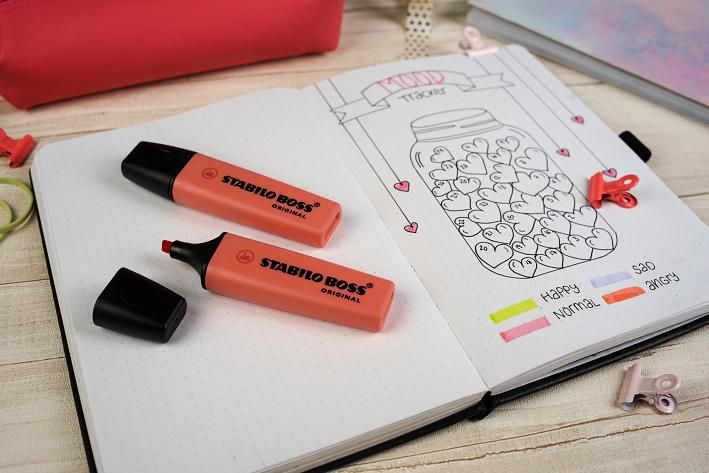 MOOD
Tracker
STABILO BOSS®
ORIGINAL
STABILO BOSS®
ORIGINAL
HAPPY
SAD
NORMAL
ANGRY